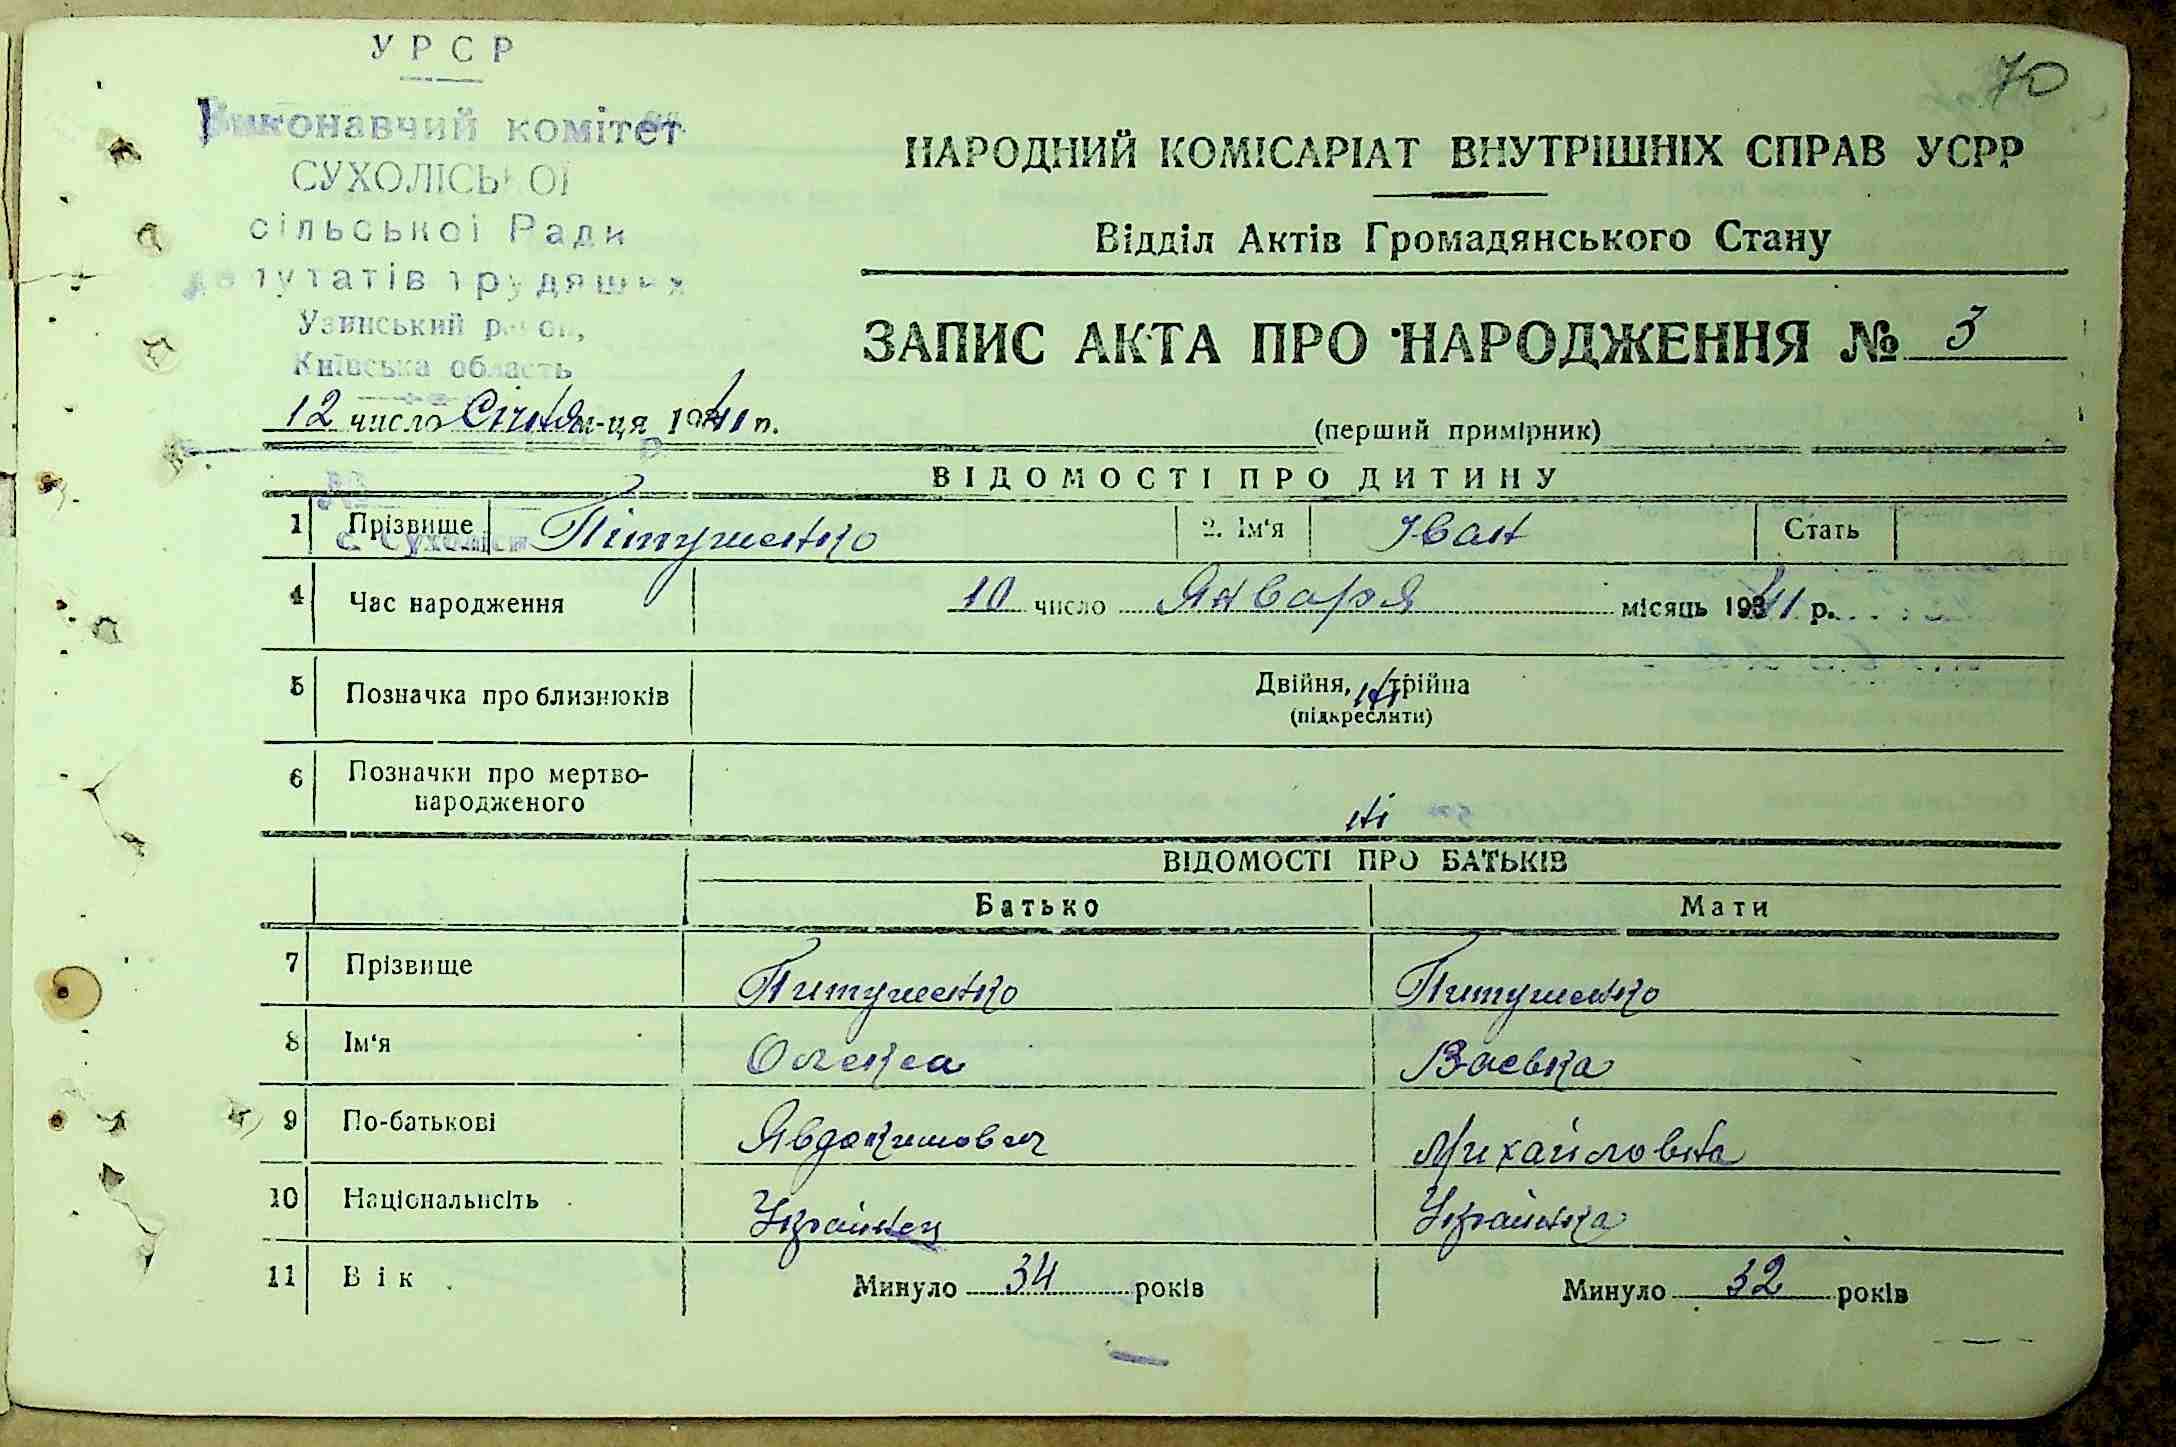 УРСР
70
Виконавчий комітет
СУХОЛІСЬКОЇ
сільської Ради
депутатів трудящих
Узинський район,
Київська область
НАРОДНИЙ КОМІСАРІАТ ВНУТРІШНІХ СПРАВ УСРР
Відділ Актів Громадянського Стану
ЗАПИС АКТА ПРО НАРОДЖЕННЯ № 3
12 число Січня м-ця 1941 р.
(перший примірник)
ВІДОМОСТІ ПРО ДИТИНУ
1 Прізвище Пітушенко 2. Ім'я Іван Стать
с. Сухоліси
4 Час народження 10 число Января місяць 1941 р.
5 Позначка про близнюків Двійня, трійня ні
(підкреслити)
6 Позначки про мертво-
народженого ні
ВІДОМОСТІ ПРО БАТЬКІВ
Батько Мати
7 Прізвище Питушенко Питушенко
8 Ім'я Олекса Васька
9 По-батькові Явдокимович Михайловна
10 Національність Украінец Украінка
11 Вік Минуло 34 років Минуло 32 років